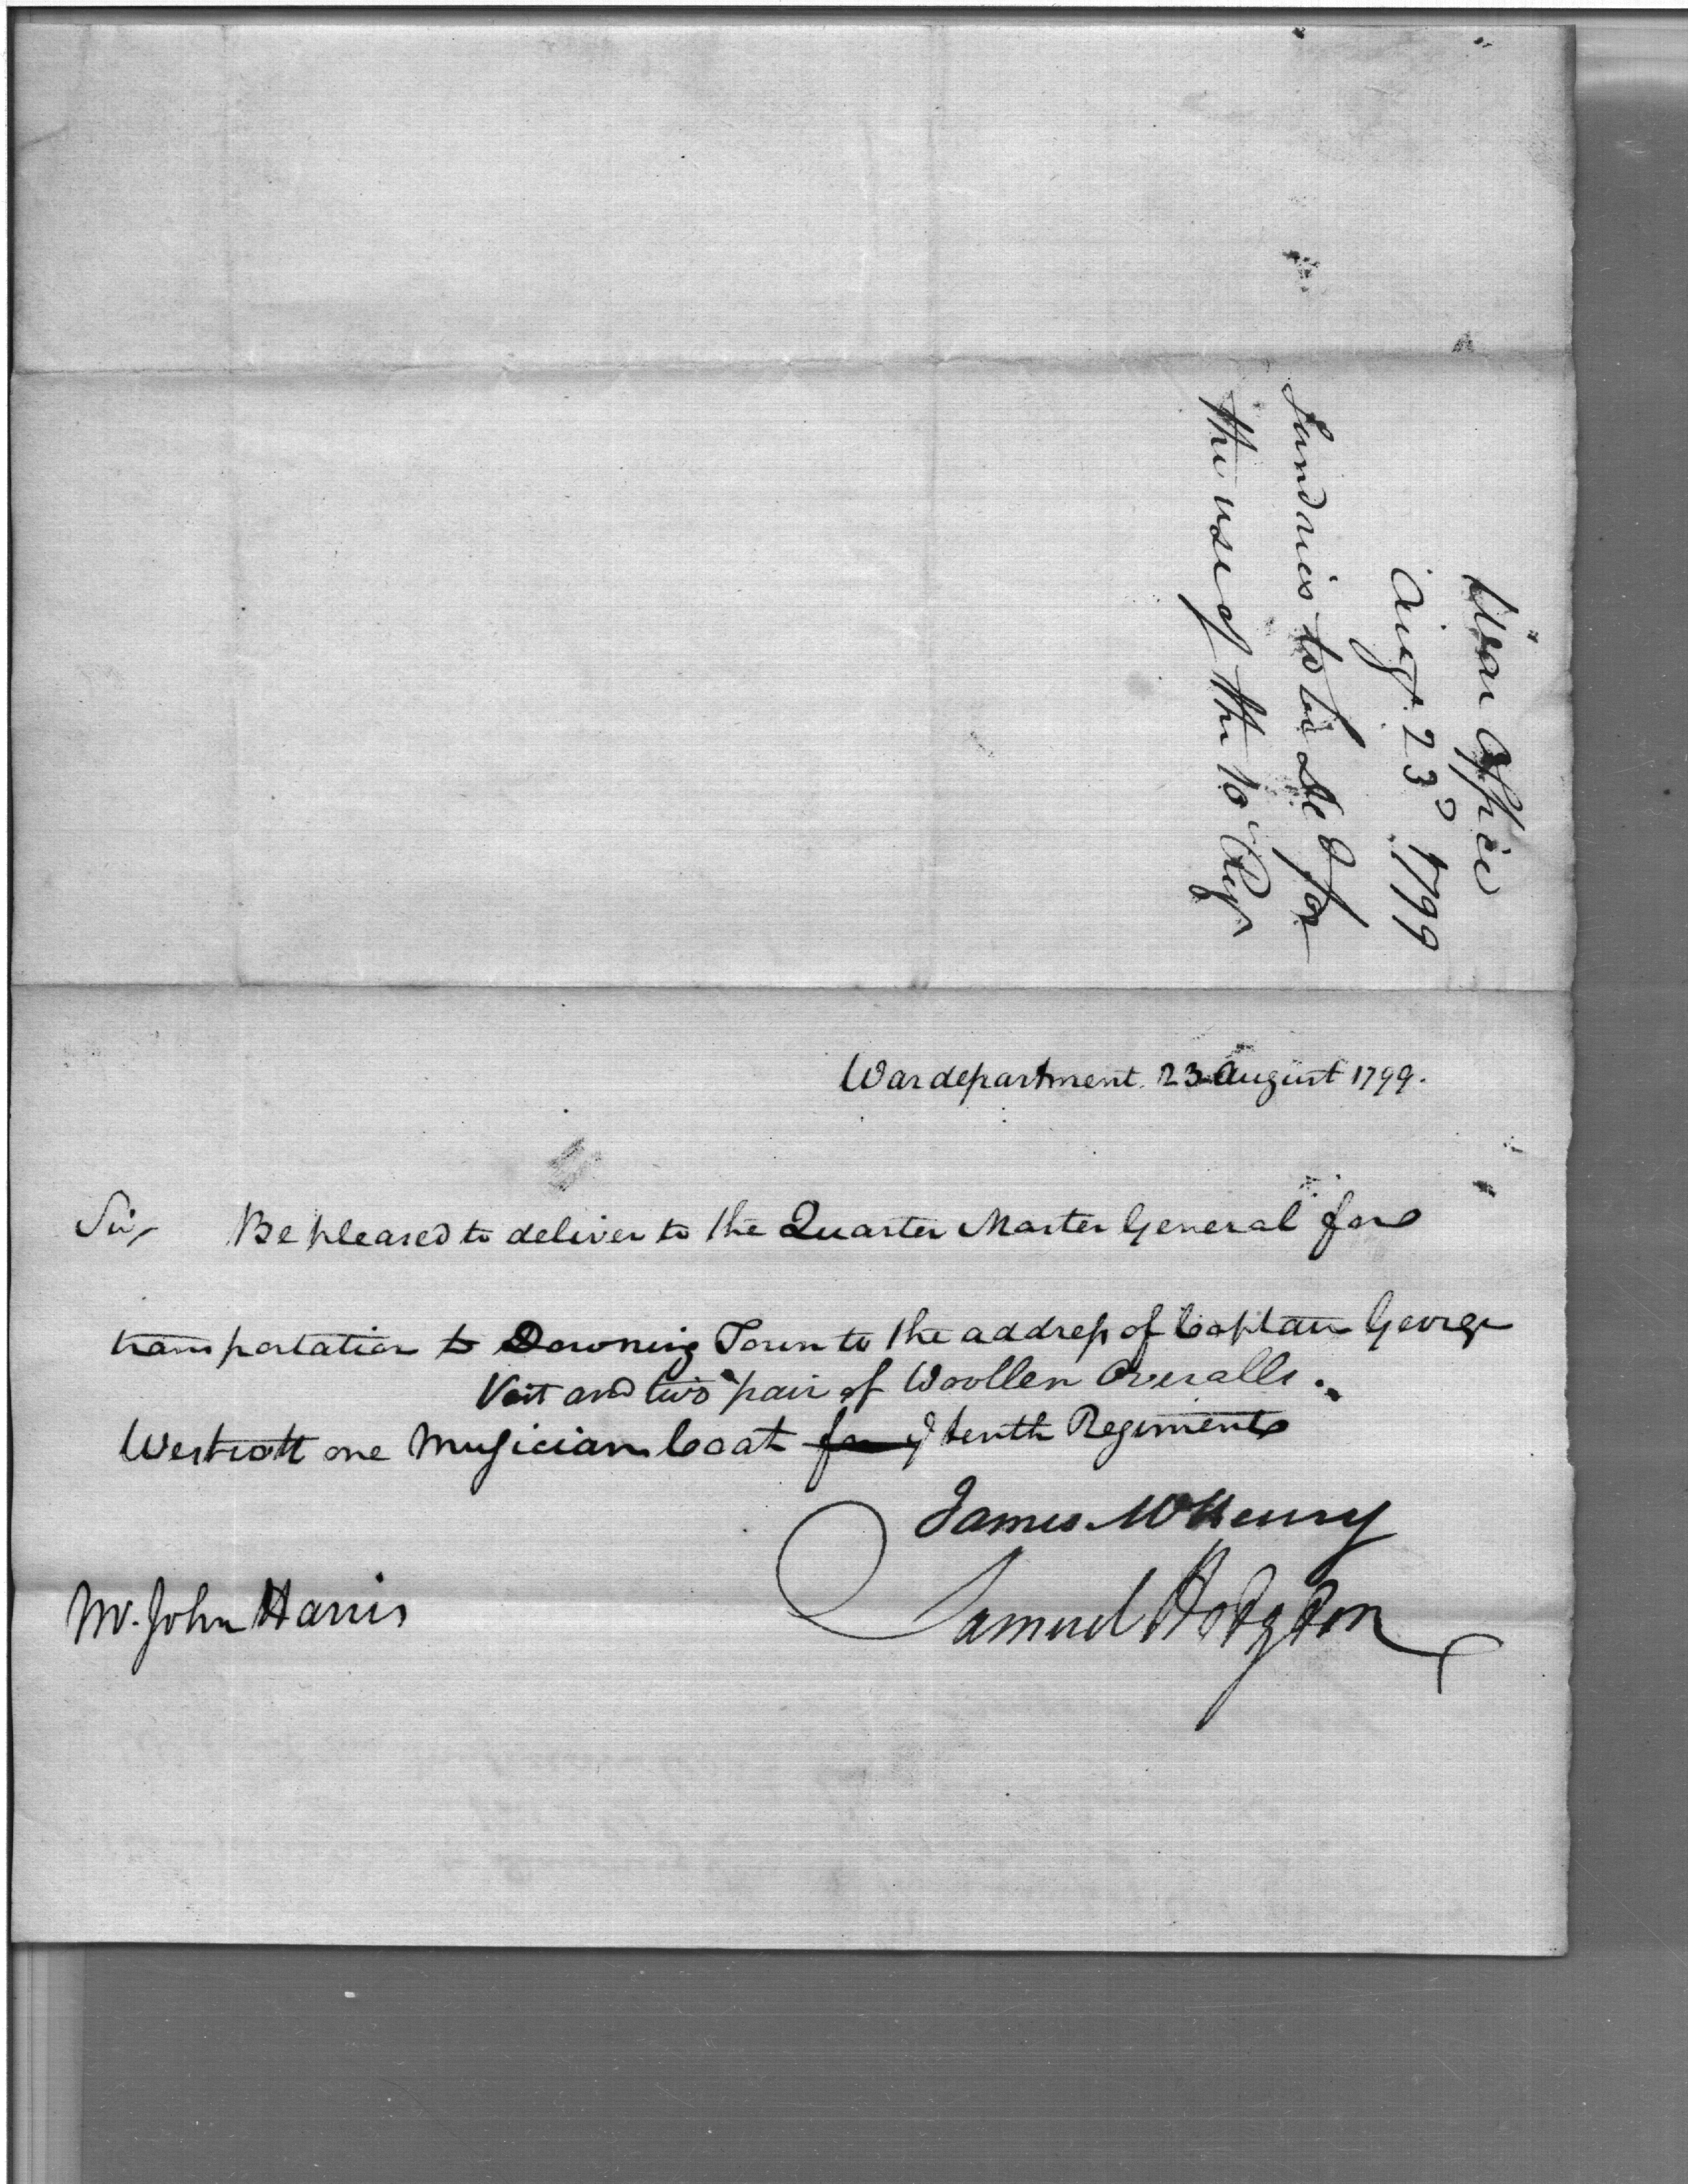 War Office
Augt. 23d 1799
Sundries to be Deld for
the use of the 10 Regt
War department. 23 August 1799.
Sir, Be pleased to deliver to the Quarter Master General for
transportation to Downing Town to the address of Captain George
Vest and two pair of Woollen Overalls.
Westcott one Musician Coat for ye tenth Regiment
James McHenry
Samuel Hodgdon
Mr. John Harris